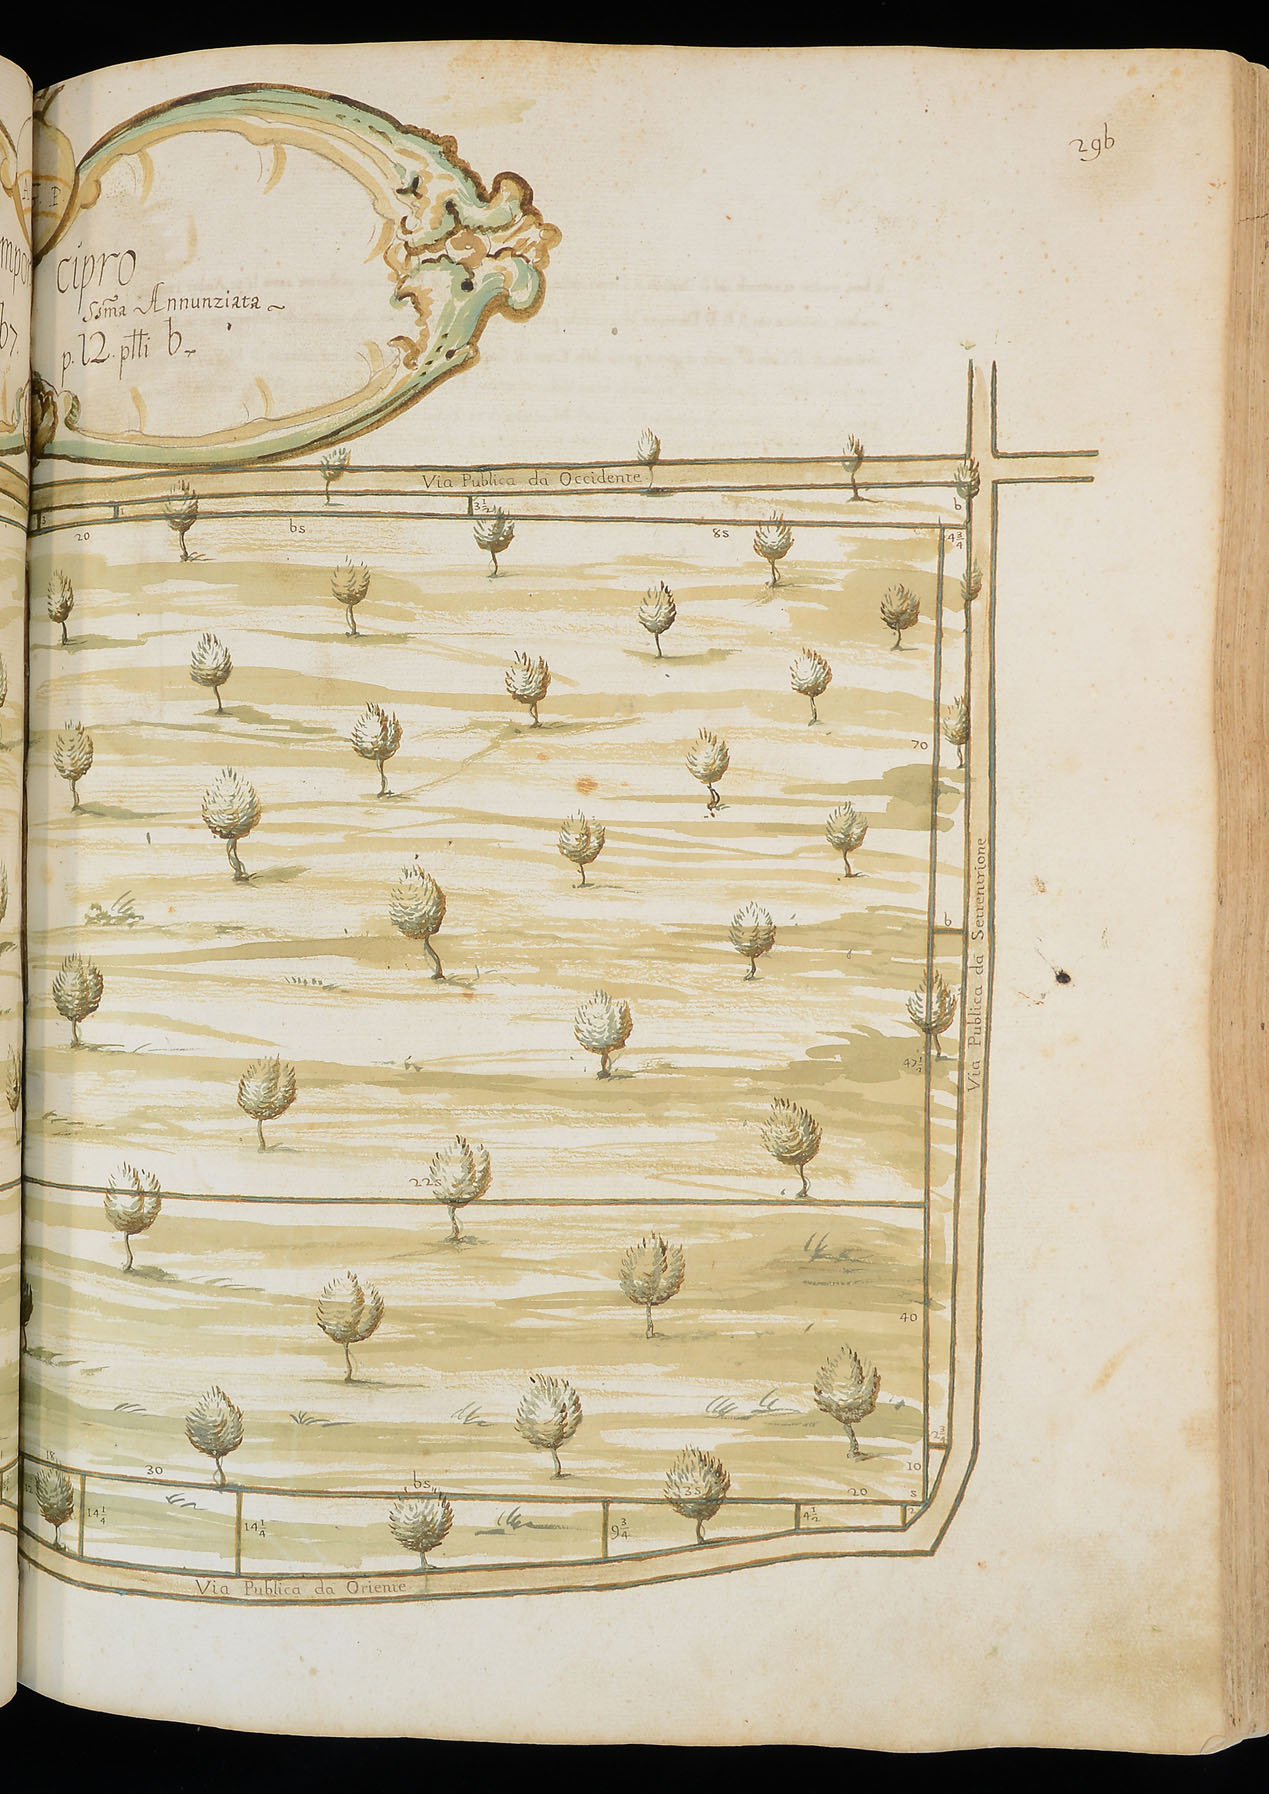 296
A.G.P
cipro
Ssma Annunziata
p. 12. ptti 6
Via Publica da Occidente
3 1/2
6
20
65
85
4 3/4
70
6
Via Publica da Settentrione
47 1/2
225
40
2 3/4
18
30
65
35
20
10
5
14 1/4
14 1/4
9 3/4
4 1/2
2
Via Publica da Oriente